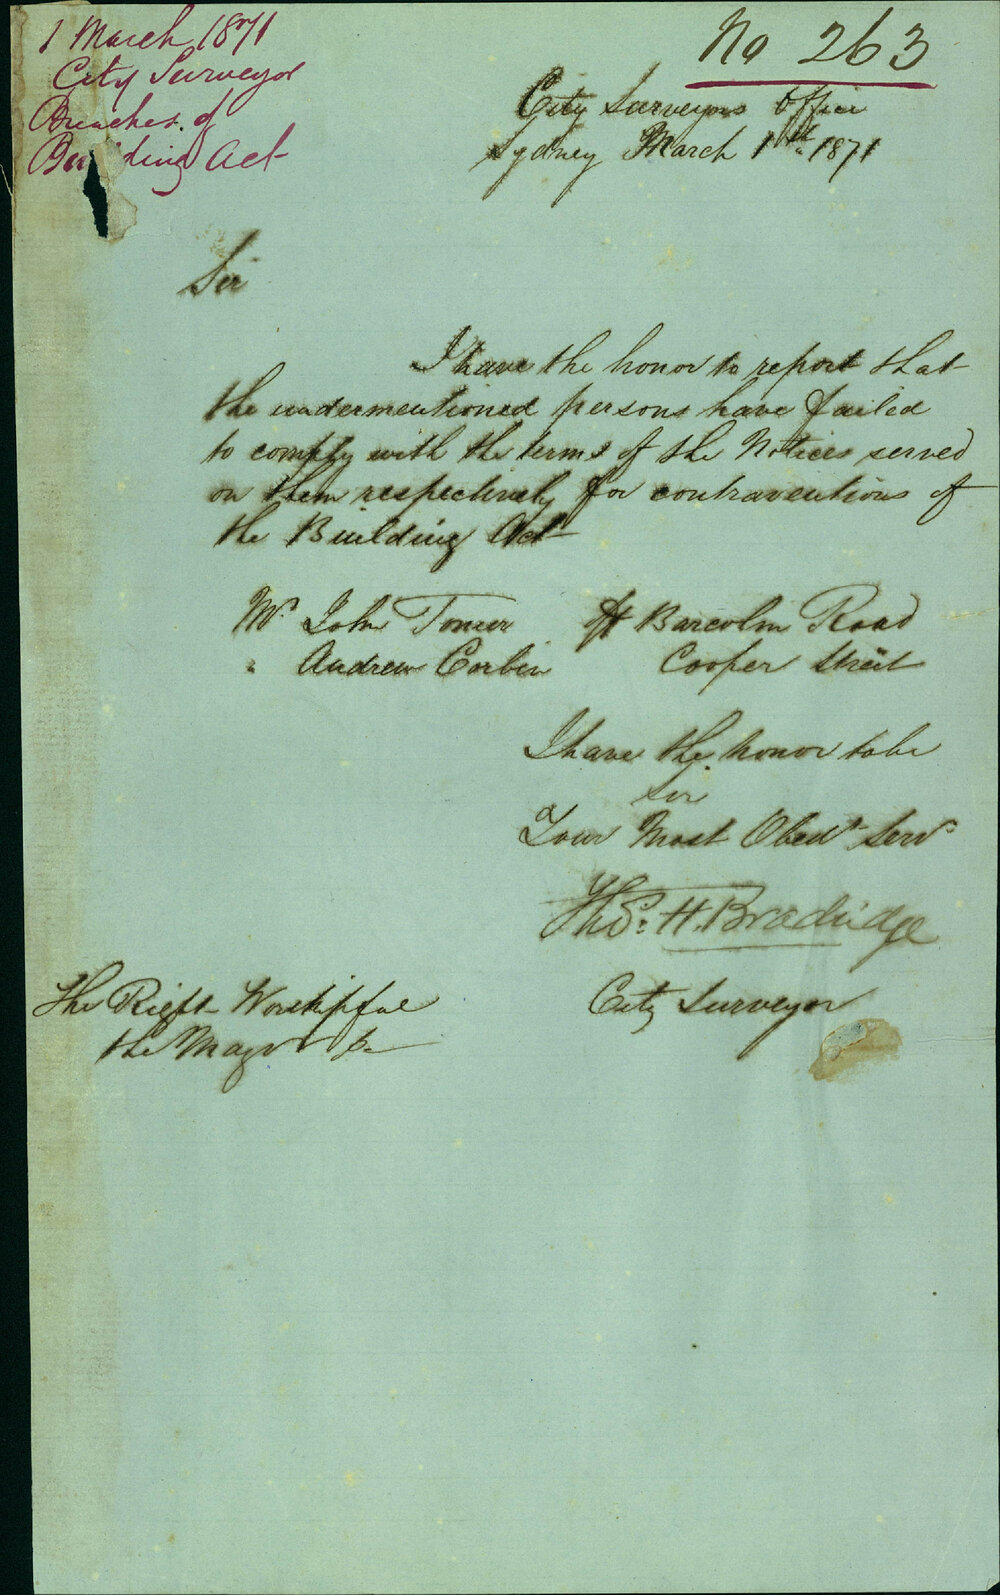 1 March 1871
City Surveyor
Breaches of
Building Act
No 263
City Surveyors Office
Sydney March 1st 1871
Sir
I have the honor to report that
the undermentioned persons have failed
to comply with the terms of the Notices served
on them respectively for contraventions of
the Building Act
Mr John Tomer Barcolm Road
" Andrew Corbin Cooper Street
I have the honor to be
Sir
Your Most Obedt Servt
Thos: H. Bradridge
City Surveyor
The Right Worshipful
the Mayor &c